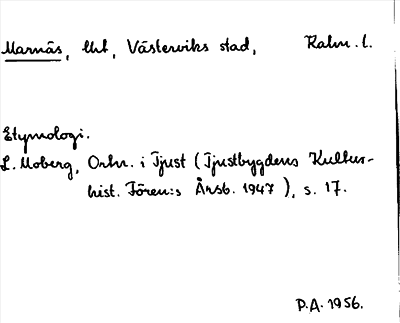 Marnäs, Ual, Västerviks stad, Kalm. l.
Etymologi.
L. Moberg, Ortn. i Tjust (Tjustbygdens Kultur-
hist. Fören:s Årsb. 1947), s. 17.
P.A. 1956.